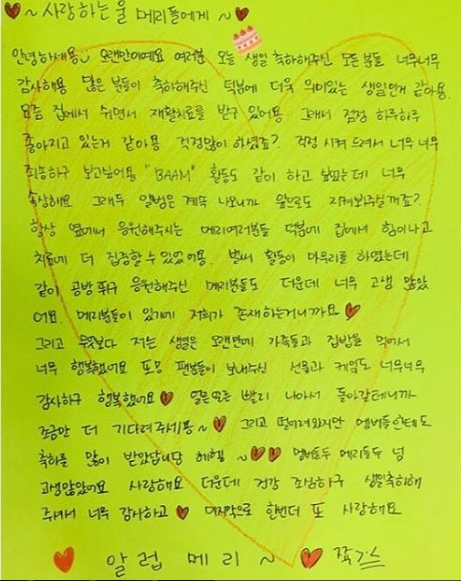 ♥~ 사랑하는 울 메리들에게 ~♥
안녕하세용~ 오랜만이에요 여러분 오늘 생일 축하해주신 모든분들 너무너무
감사해용 많은 분들이 축하해주신 덕분에 더욱 의미있는 생일인거 같아용.
요즘 집에서 쉬면서 재활치료를 받구 있어용. 그래서 점점 하루하루
좋아지고 있는거 같아용. 걱정많이 하셨죠? 걱정 시켜 드려서 너무 너무
죄송하구 보고싶어용 "BAAM" 활동도 같이 하고 싶었는데 너무
속상해요 그래두 앨범은 계속 나오니까 앞으로도 지켜봐주실꺼죠?
항상 옆에서 응원해주시는 메리여러분들 덕분에 집에서 힘이나고
치료에 더 집중할 수 있었어용. 벌써 활동이 마무리를 하였는데
같이 공방 뛰구 응원해주신 메리분들도 더운데 너무 고생 많았
어요. 메리분들이 있기에 저희가 존재하는거니까요 ♥
그리고 무엇보다 저는 생일을 오랜만에 가족들과 집밥을 먹어서
너무 행복했어요 또 팬분들이 보내주신 선물과 케익도 너무너무
감사하구 행복했어요 ♥ 얼른얼른 빨리 나아서 돌아갈테니까
조금만 더 기다려주세용~ ♥ 그리고 떨어져있지만 멤버들한테도
축하를 많이 받았답니당 헤헿 ~♥♥ 멤버들두 메리들두 넘
고생많았어요 사랑해요 더운데 건강 조심하구 생일축하해
주셔서 너무 감사하고 ♥ 마지막으로 한번더 또 사랑해요
♥ 알럽 메리 ~ ♥